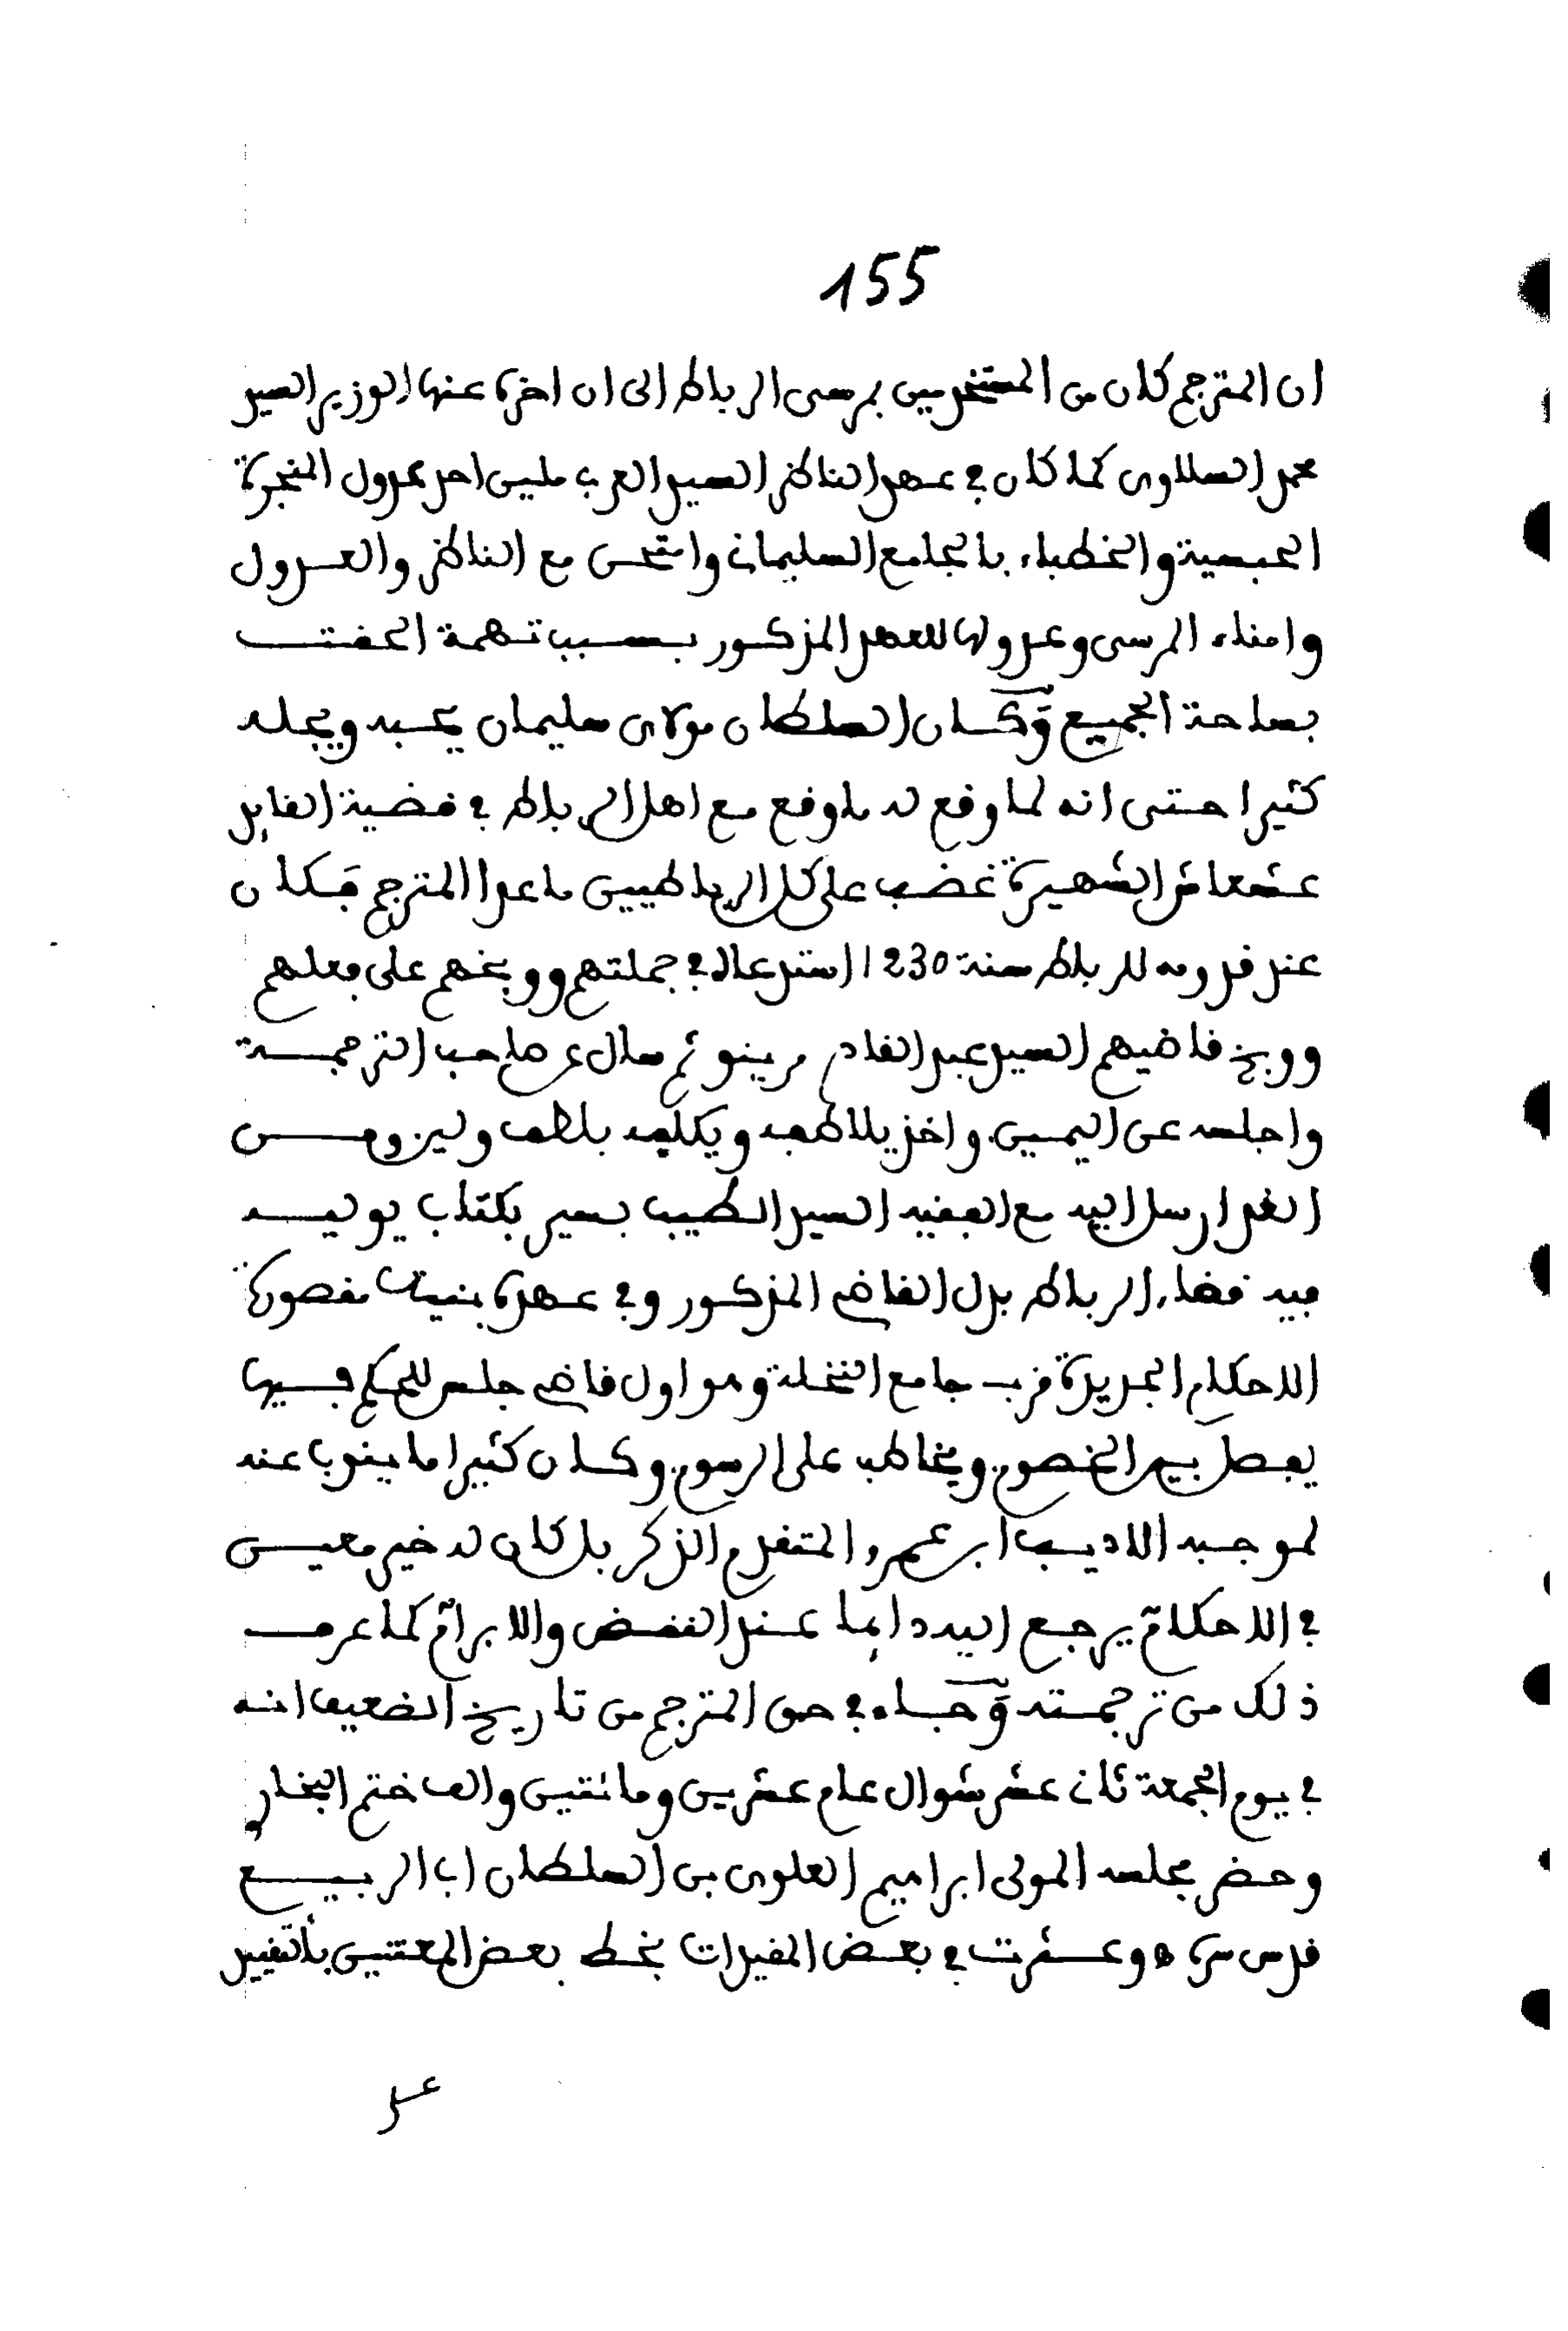 155
ان المترجم كان من المستخدمين بمرسى الرباط الى ان اخره عنها الوزير السيد
محمد السلاوى كما كان في عهد الناظر السيد العربي ملين احد عدول المنجرة
الحبسية والخطباء بالجامع السليماني وامتحن مع الناظر والعدول
وامناء المرسى وعدولها للعهد المذكور بسبب تهمة الحقت
بساحة الجميع وكان السلطان مولاى سليمان يحبه ويجله
كثيرا حتى انه لما وقع له ما وقع مع اهل الرباط في قضية القايد
عشعاش الشهيرة غضب على كل الرباطيين ما عدا المترجم فكان
عند قدومه للرباط سنة 1230 استدعاه في جملتهم ووبخهم على فعلهم
ووبخ قاضيهم السيد عبد القادر مرينو ثم سال عن صاحب الترجمة
واجلسه عن اليمين واخذ يلاطفه ويكلمه بلطف ولين ومن
الغد ارسل اليه مع الفقيه السيد الطيب بسير بكتاب يوليه
فيه قضاء الرباط بدل القاضي المذكور وفي عهده بنيت مقصورة
الاحكام الجديدة قرب جامع النخلة وهو اول قاضي جلس للحكم فيها
يفصل بين الخصوم ويخاطب على الرسوم وكان كثيرا ما ينوب عنه
لموجبه الاديب ابن عمرو المتقدم الذكر بل كان له خير معين
في الاحكام يرجع اليه دايما عند النقض والابرام كما عرف
ذلك من ترجمته وجاء في حق المترجم من تاريخ الضعيف انه
في يوم الجمعة ثاني عشر شوال عام عشرين ومائتين والف ختم البخاري
وحضر مجلسه المولى ابراهيم العلوى بن السلطان ابي الربيع
قدس سره ه وعثرت في بعض المقيدات بخط بعض المعتنين بالتقييد
على